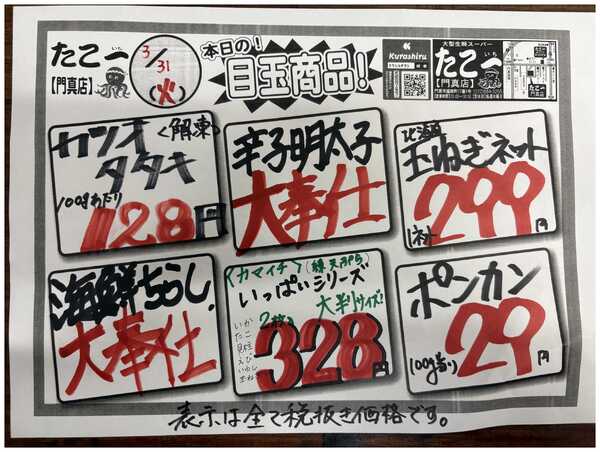 たこ一
いち
【門真店】
3/31
(火)
本日の!
目玉商品!
Kurashiru
大型生鮮スーパー
たこ一
いち
【門真店】
カツオ
<解凍>
タタキ
100gあたり
128円
辛子明太子
大奉仕
北海道
玉ねぎネット
1ネット
299円
海鮮ちらし
大奉仕
<カマイチ>
いっぱいシリーズ
大判サイズ!
2枚入
328円
ポンカン
100g当り
29円
表示は全て税抜き価格です。